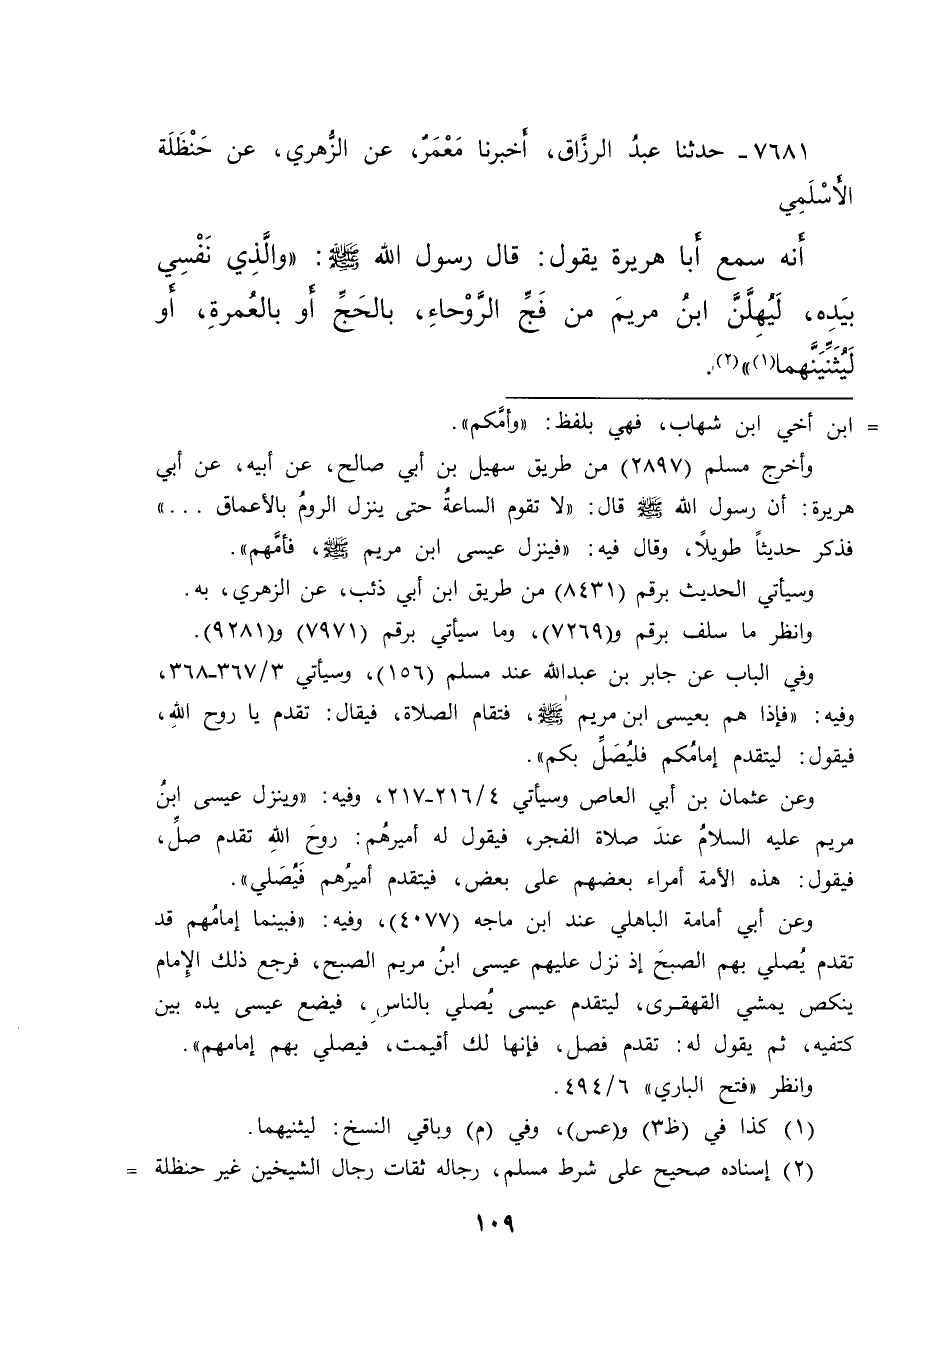 ٧٦٨١ـ حدثنا عبدُ الرزَّاق، أَخبرنا مَعْمَرٌ، عن الزُّهري، عن حَنْظَلَة
الأَسْلَمِي
أَنه سمع أَبا هريرة يقول: قال رسول الله ﷺ: «والَّذِي نَفْسِي
بيَدِه، لَيُهِلَّنَّ ابنُ مريمَ من فَجِّ الرَّوْحاءِ، بالحَجِّ أَو بالعُمرةِ، أَو
لَيُثَنِّيَنَّهما(١)»(٢).
= ابن أخي ابن شهاب، فهي بلفظ: «وأمَّكم».
وأخرج مسلم (٢٨٩٧) من طريق سهيل بن أبي صالح، عن أبيه، عن أبي
هريرة: أن رسول الله ﷺ قال: «لا تقوم الساعةُ حتى ينزل الرومُ بالأعماق ...»
فذكر حديثاً طويلًا، وقال فيه: «فينزل عيسى ابن مريم ﷺ، فأمَّهم».
وسيأتي الحديث برقم (٨٤٣١) من طريق ابن أبي ذئب، عن الزهري، به.
وانظر ما سلف برقم و(٧٢٦٩)، وما سيأتي برقم (٧٩٧١) و(٩٢٨١).
وفي الباب عن جابر بن عبدالله عند مسلم (١٥٦)، وسيأتي ٣/٣٦٧ـ٣٦٨،
وفيه: «فإذا هم بعيسى ابن مريم ﷺ، فتقام الصلاة، فيقال: تقدم يا روح اللهِ،
فيقول: ليتقدم إمامُكم فليُصَلِّ بكم».
وعن عثمان بن أبي العاص وسيأتي ٤/٢١٦ـ٢١٧، وفيه: «وينزل عيسى ابنُ
مريم عليه السلامُ عندَ صلاة الفجر، فيقول له أميرهُم: روحَ اللهِ تقدم صلِّ،
فيقول: هذه الأمة أمراء بعضهم على بعض، فيتقدم أميرُهم فَيُصَلي».
وعن أبي أمامة الباهلي عند ابن ماجه (٤٠٧٧)، وفيه: «فبينما إمامُهم قد
تقدم يُصلي بهم الصبحَ إذ نزل عليهم عيسى ابنُ مريم الصبح، فرجع ذلك الإِمام
ينكص يمشي القهقرى، ليتقدم عيسى يُصلي بالناسِ، فيضع عيسى يده بين
كتفيه، ثم يقول له: تقدم فصل، فإنها لك أقيمت، فيصلي بهم إمامهم».
وانظر «فتح الباري» ٦/٤٩٤.
(١) كذا في (ظ٣) و(عس)، وفي (م) وباقي النسخ: ليثنيهما.
(٢) إسناده صحيح على شرط مسلم، رجاله ثقات رجال الشيخين غير حنظلة =
١٠٩